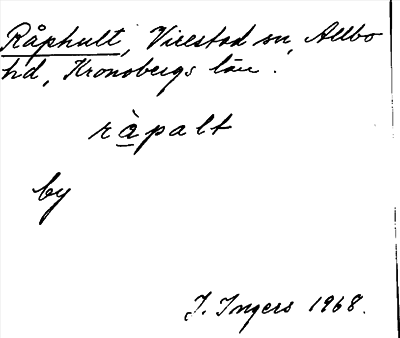 Råphult, Virestad sn, Allbo
hd, Kronobergs län.
ràpalt
by
I. Ingers 1968.